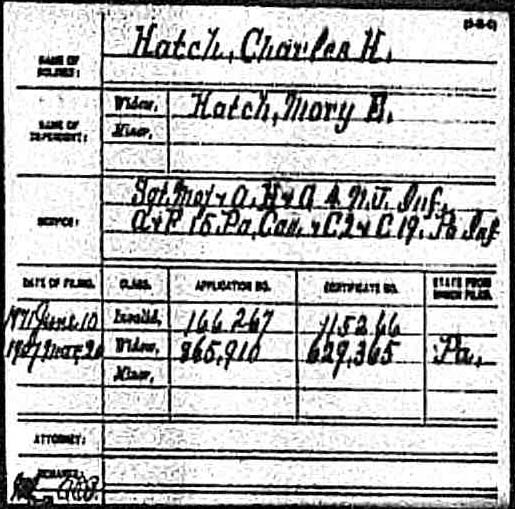 (3-2-6)
NAME OF SOLDIER: Hatch, Charles H.
NAME OF DEPENDENT: Widow, Hatch, Mary E.
Minor,
SERVICE: Sgt. Maj & A, H & A 4 N.J. Inf.,
A & P 15 Pa. Cav. & C 2 & C 19. Pa Inf
DATE OF FILING. CLASS. APPLICATION NO. CERTIFICATE NO. STATE FROM WHICH FILED.
1871 June 10 Invalid, 166 267 115266
1907 Mar. 26 Widow, 865,910 629,365 Pa.
Minor,
ATTORNEY:
REMARKS: